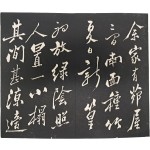 余家有茅屋
二間南面種竹
夏日新篁
初放緑陰照
人置一小榻
其間甚涼適